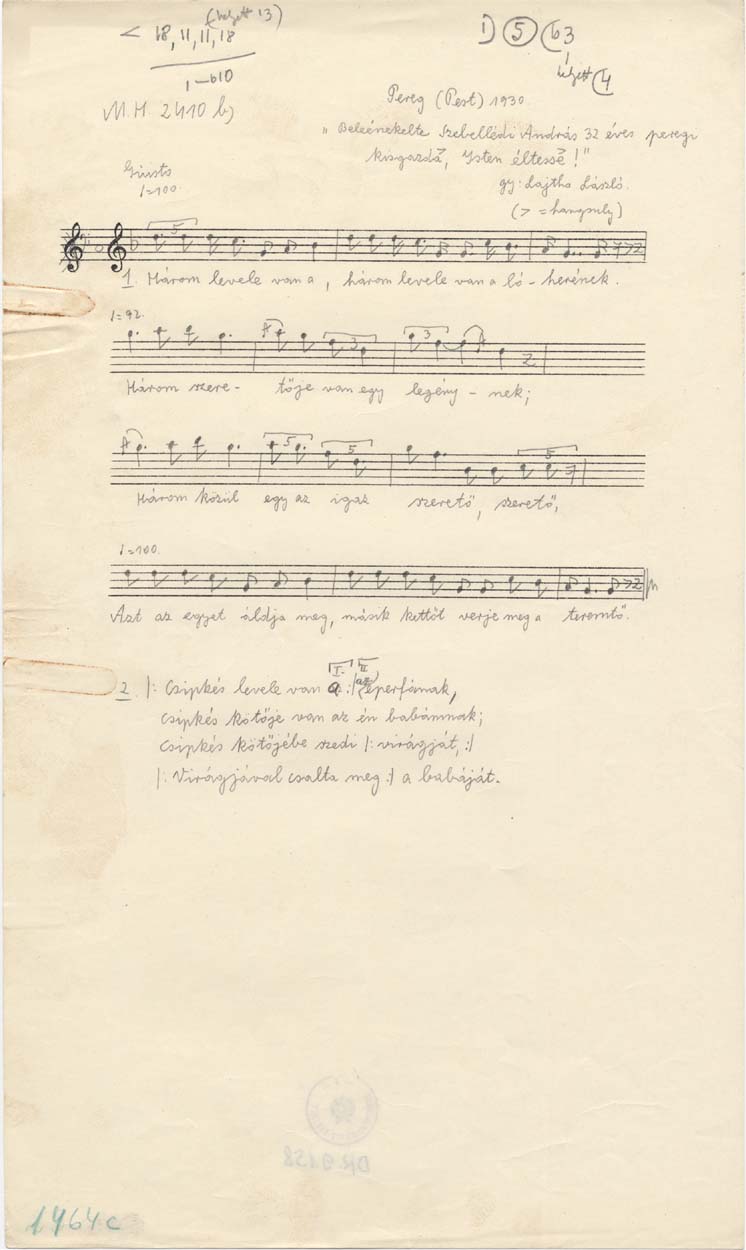 (helyett 13)
< 18, 11, 11, 18
1–b10
1) (5) (b3
helyett (4
M.H. 2410 b)
Pereg (Pest) 1930.
"Beleénekelte Szebellédi András 32 éves peregi
kisgazda, Isten éltesse!"
gy: Lajtha László.
(> = hangsuly)
Giusto
♩=100.
5
1. Három levele van a, három levele van a ló-herének.
♩=92.
3 3
Három szere- tője van egy legény-nek;
5 5 5
Három közül egy az igaz szerető, szerető,
♩=100.
Azt az egyet áldja meg, másik kettőt verje meg a teremtő.
I. II
az
2. |: Csipkés levele van a :| eperfának,
Csipkés kötője van az én babámnak;
Csipkés kötőjébe szedi |: virágját, :|
|: Virágjával csalta meg :| a babáját.
1464c